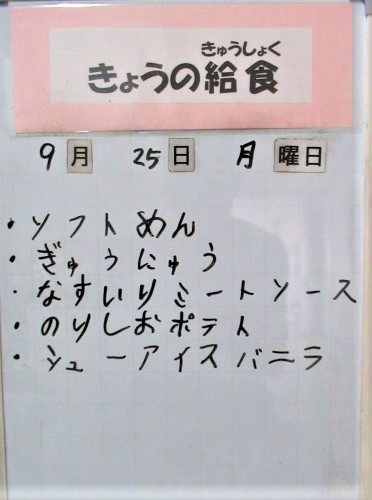 きゅうしょく
きょうの給食
9月 25日 月曜日
・ソフトめん
・ぎゅうにゅう
・なすいりミートソース
・のりしおポテト
・シューアイスバニラ